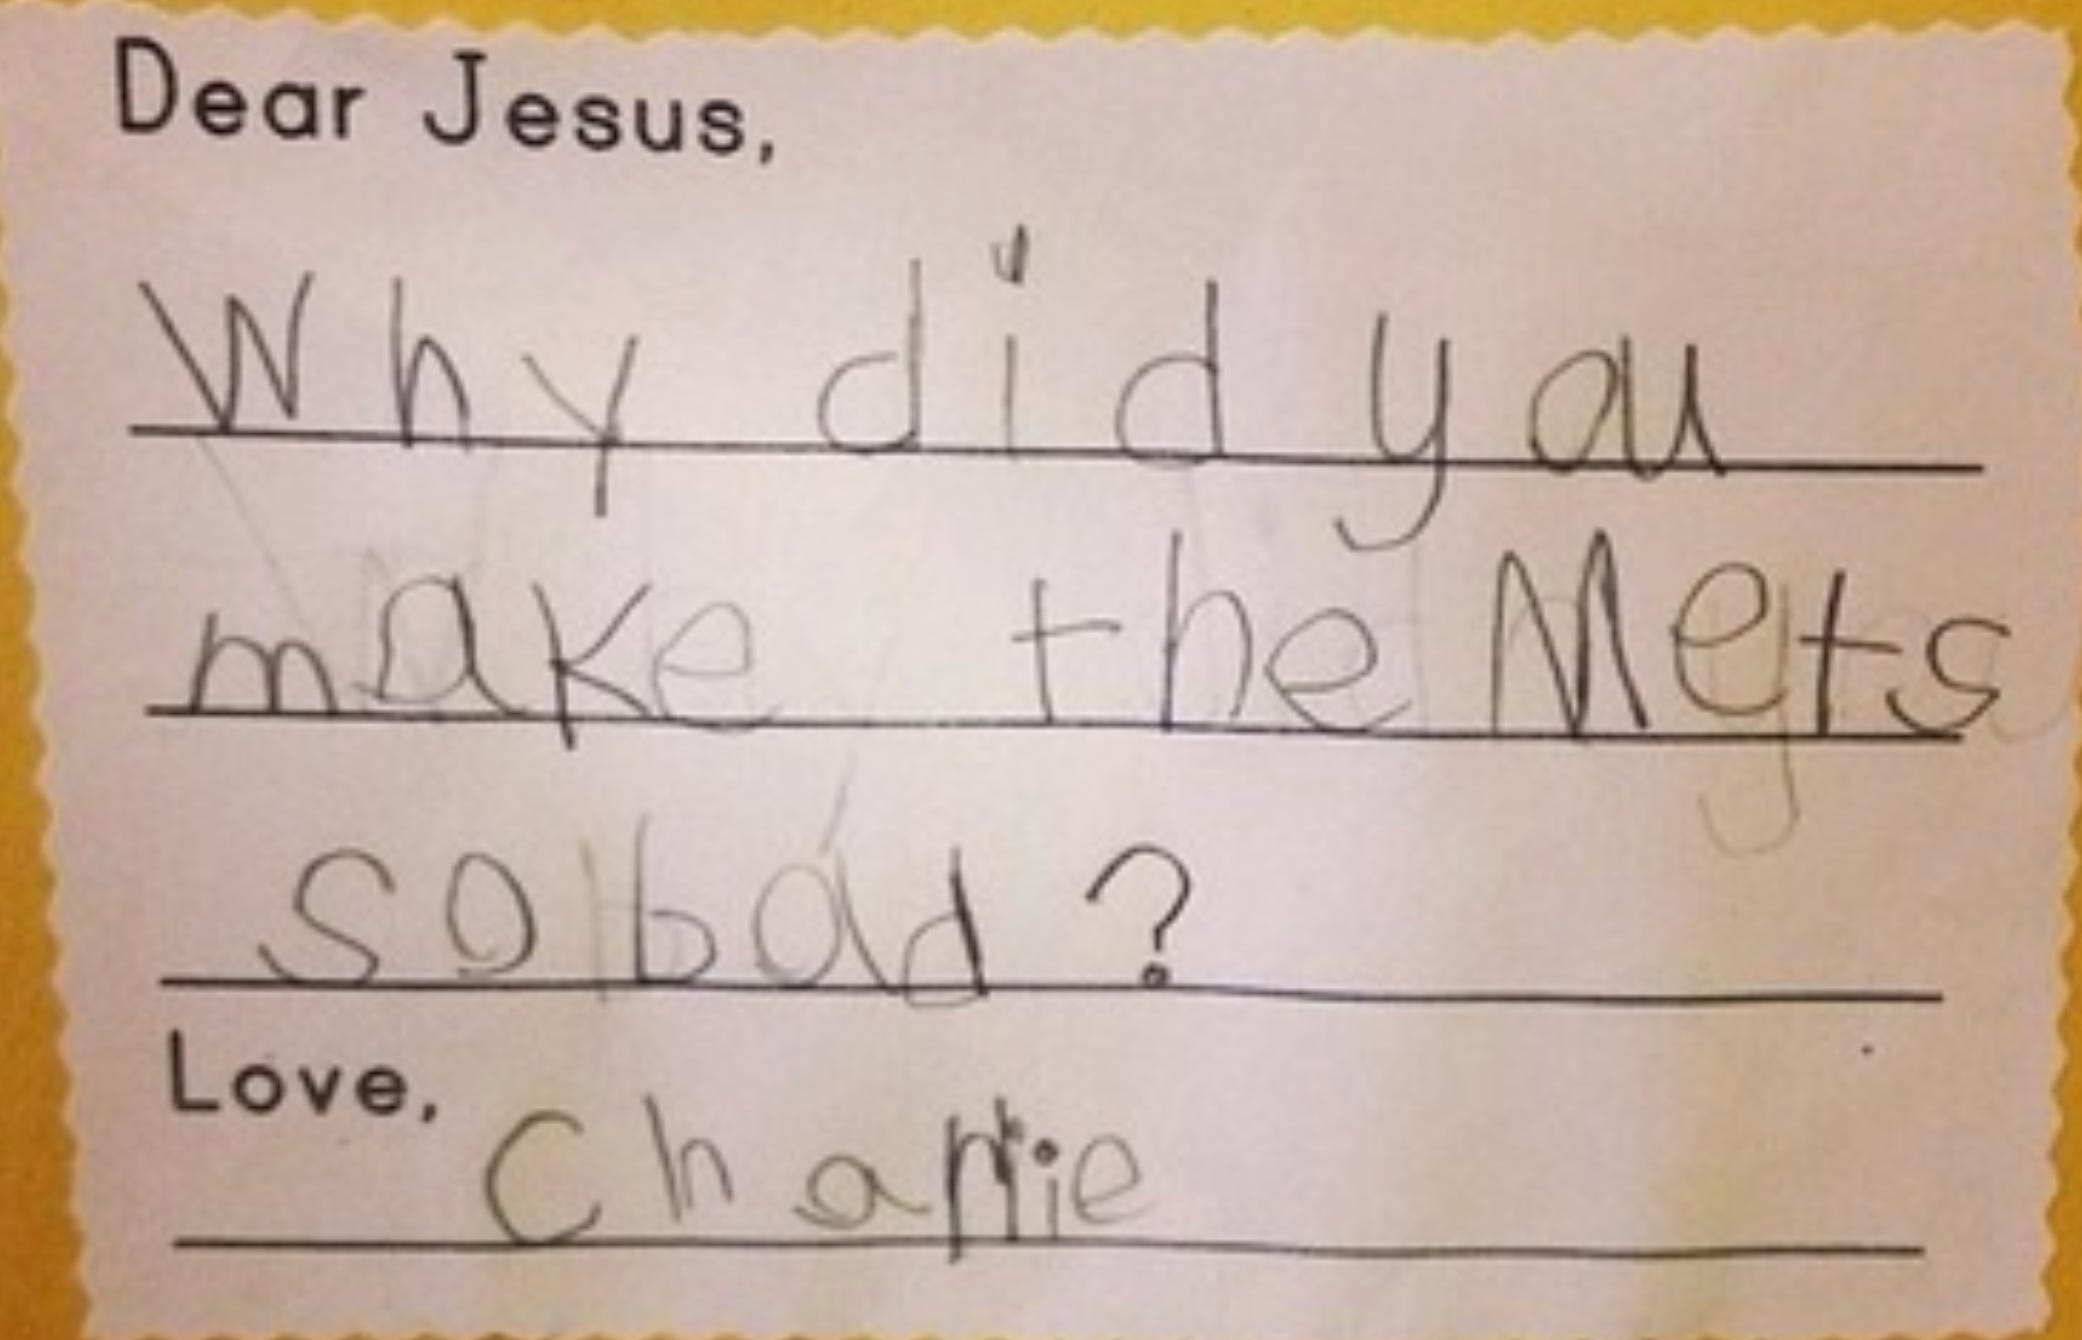 Dear Jesus,
Why did you
make the Mets
so bad?
Love,
Charlie